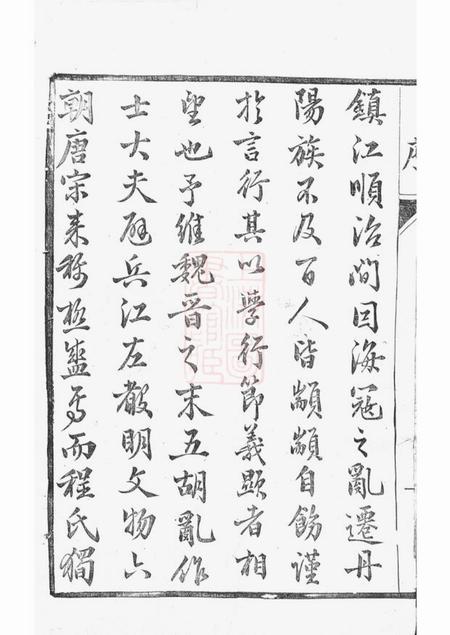 鎮江順治間因海寇之亂遷丹
陽族不及百人皆顓顓自飭謹
於言行其以學行節義顯者相
望也予維魏晉之末五胡亂作
士大夫避兵江左聲明文物六
朝唐宋来称極盛焉而程氏獨
序